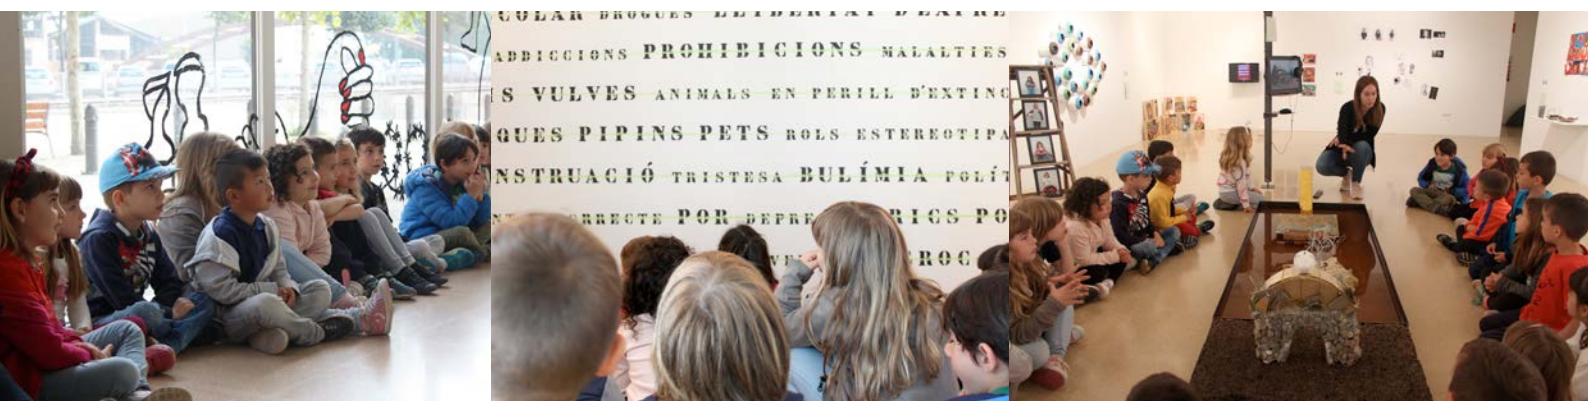 COLAR DROGUES LLIBERTAT D'EXPRE
ADDICCIONS PROHIBICIONS MALALTIES
S VULVES ANIMALS EN PERILL D'EXTINC
QUES PIPINS PETS ROLS ESTEREOTIPA
NSTRUACIÓ TRISTESA BULÍMIA POLÍT
RRECTE POR DEPRE RICS PO
ROC